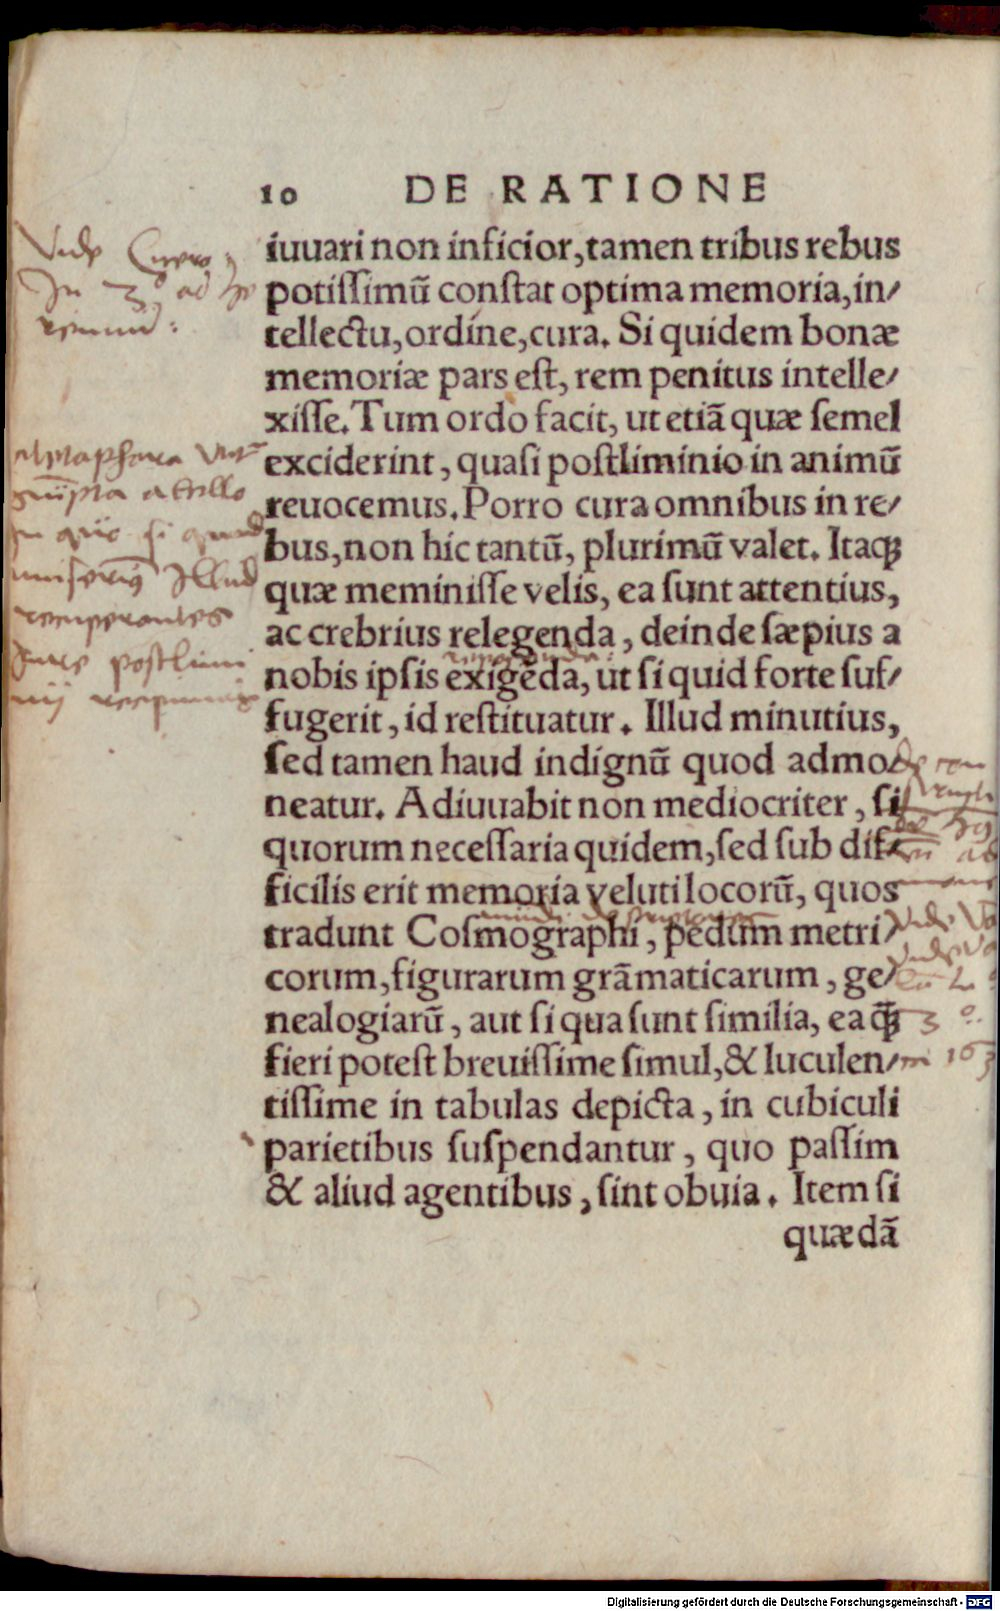 10 DE RATIONE
iuuari non inficior, tamen tribus rebus
potissimũ constat optima memoria, in/
tellectu, ordine, cura. Si quidem bonæ
memoriæ pars est, rem penitus intelle/
xisse. Tum ordo facit, ut etiã quæ semel
exciderint, quasi postliminio in animũ
reuocemus. Porro cura omnibus in re/
bus, non hic tantũ, plurimũ valet. Itaqꝫ
quæ meminisse velis, ea sunt attentius,
ac crebrius relegenda, deinde sæpius a
nobis ipsis exigẽda, ut si quid forte suf/
fugerit, id restituatur. Illud minutius,
sed tamen haud indignũ quod admo/
neatur. Adiuuabit non mediocriter, si
quorum necessaria quidem, sed sub dif/
ficilis erit memoria veluti locorũ, quos
tradunt Cosmographi, pedum metri/
corum, figurarum grãmaticarum, ge/
nealogiarũ, aut si qua sunt similia, ea qꝫ
fieri potest breuissime simul, & luculen/
tissime in tabulas depicta, in cubiculi
parietibus suspendantur, quo passim
& aliud agentibus, sint obuia. Item si
quædã
Vide Cicero
In 3° ad he
renniũ:
Metaphora
recuperantes
Jure postlimi
nij
Digitalisierung gefördert durch die Deutsche Forschungsgemeinschaft - DFG